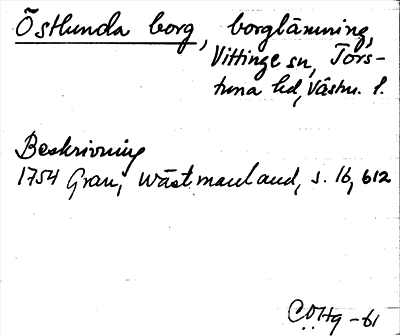 Östlunda borg, borglämning,
Vittinge sn, Tors-
tuna hd, Västm. l.
Beskrivning
1754 Grau, Wästmanland, s. 16, 612
C.O.Hg -61